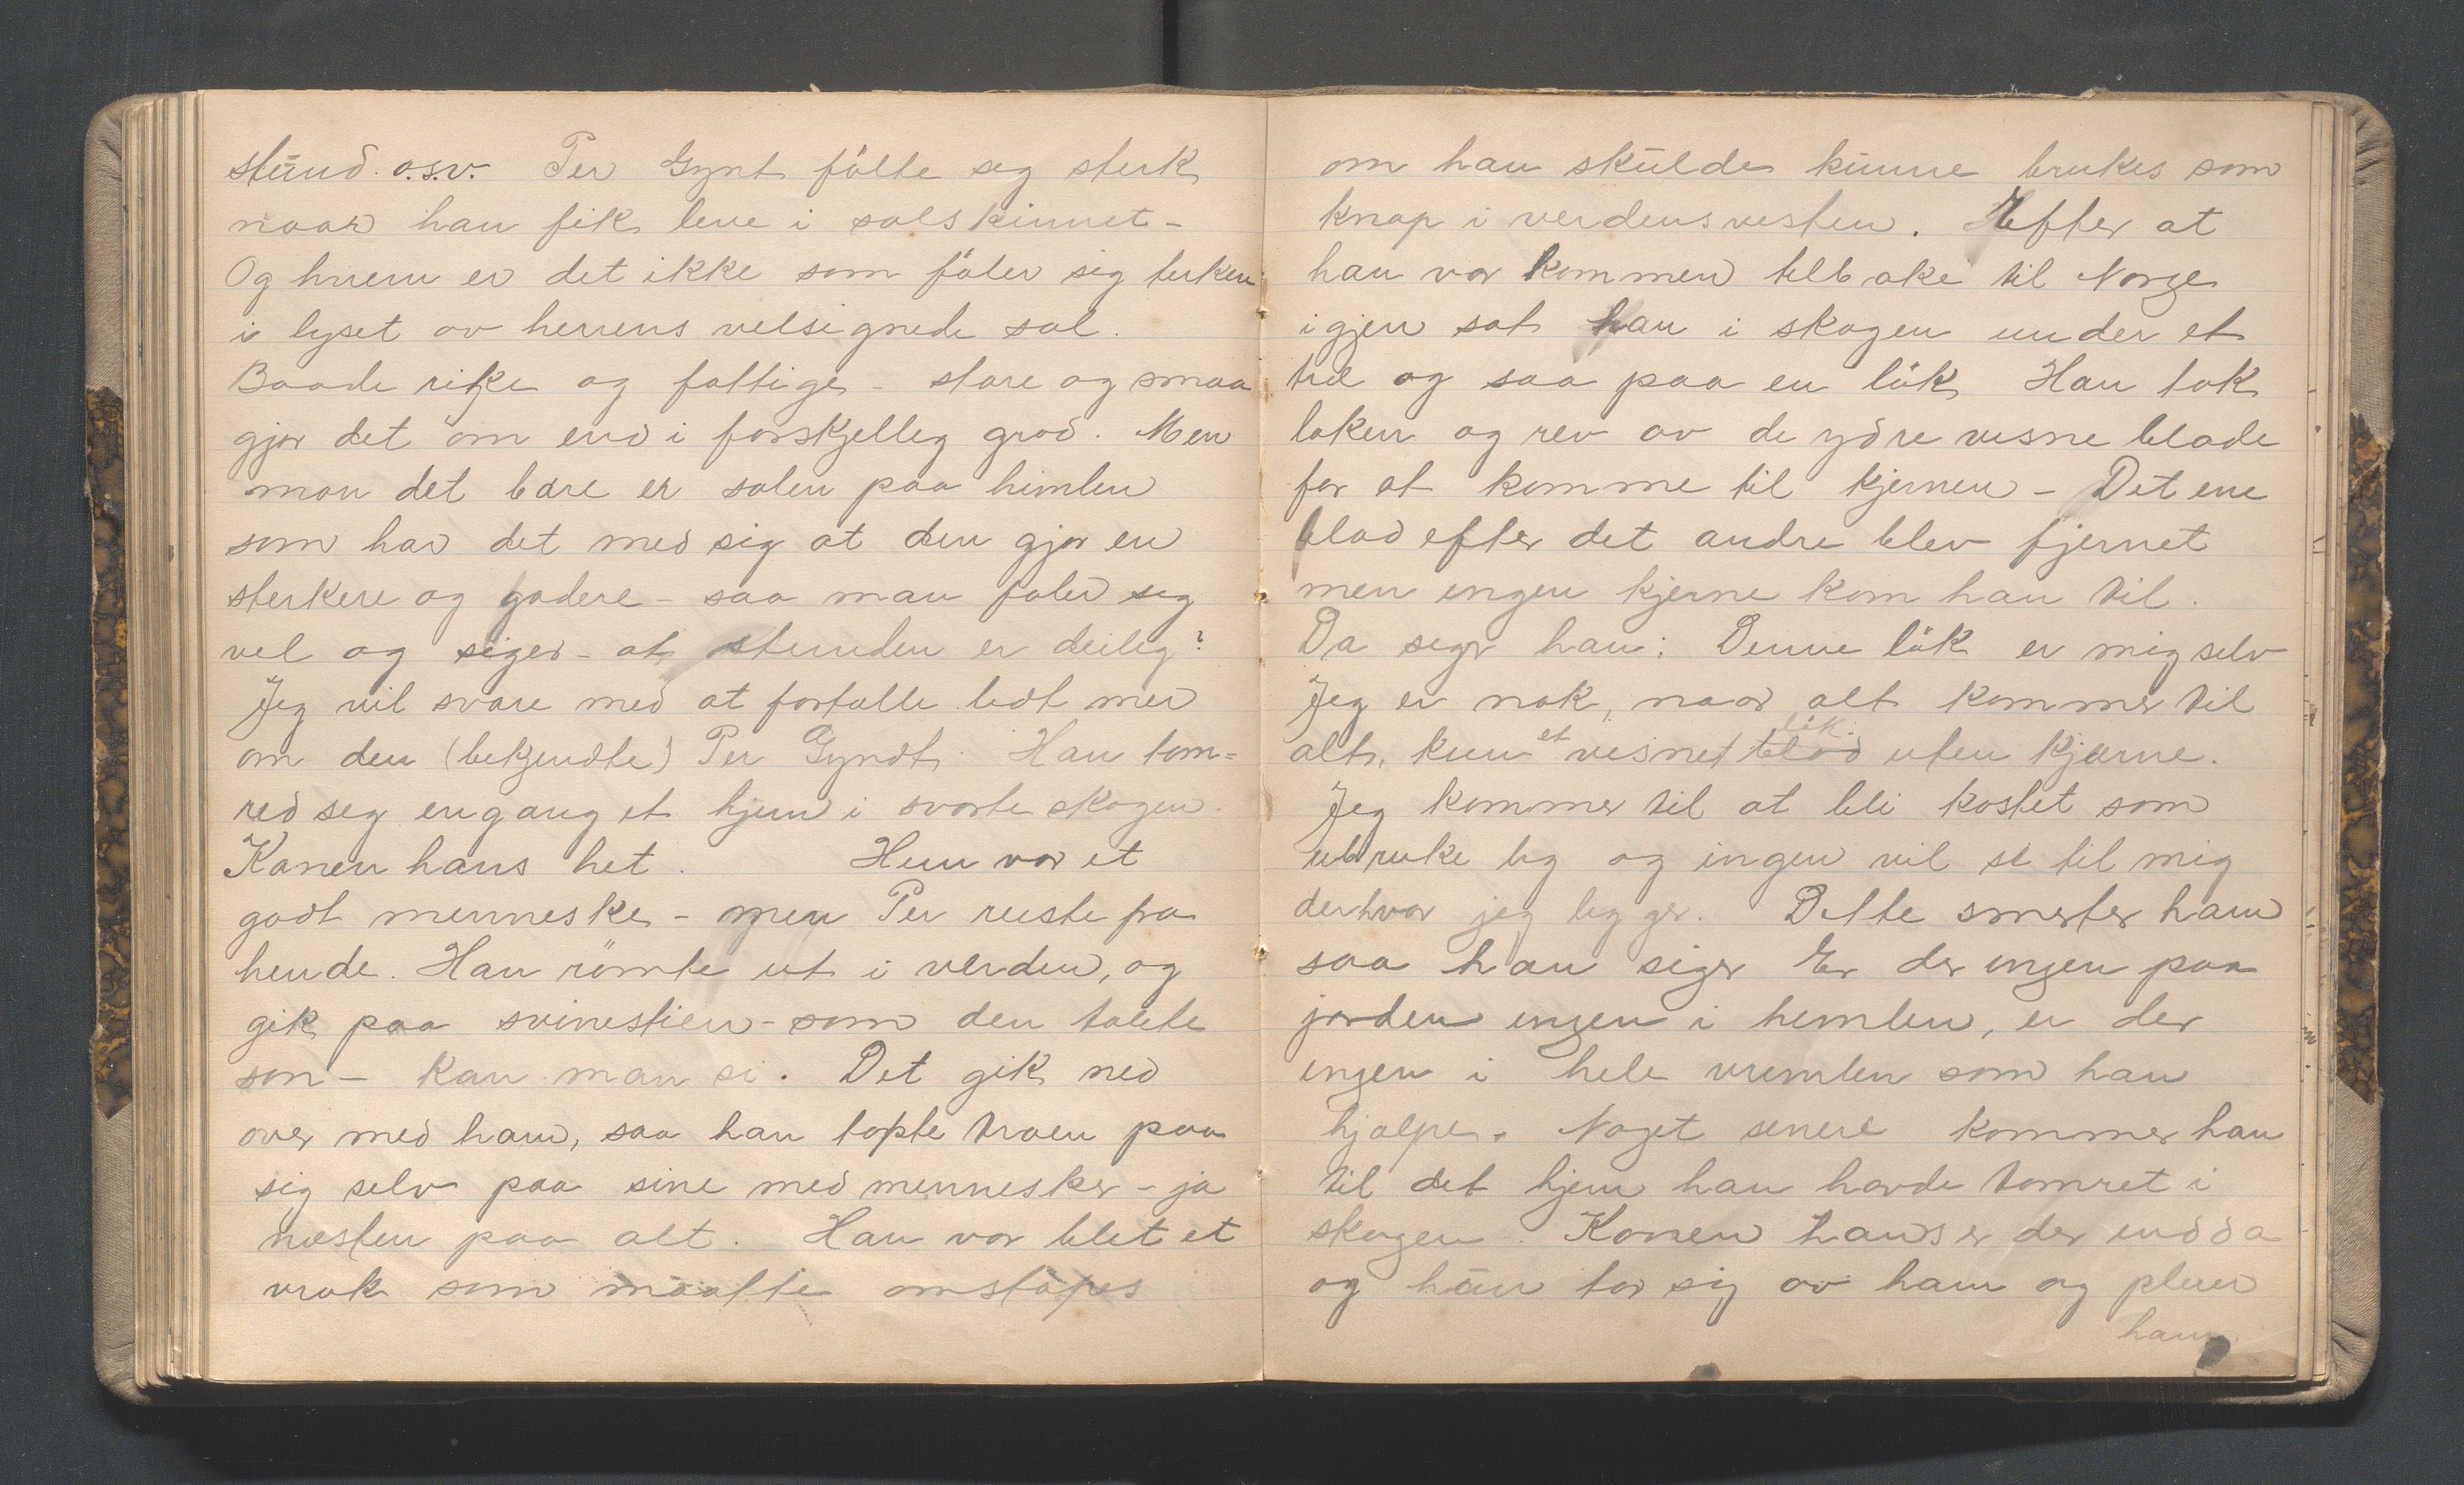 stund o.s.v. Per Gynt fölte seg sterk
naar han fik leve i solskinnet -
Og hvem er det ikke som föler sig sterkere
i lyset av herrens velsignede sol.
Baade rike og fattige - store og smaa
gjør det om end i forskjelleg grad. Men
mon det bare er solen paa himlen
som har det med sig at den gjør en
sterkere og godere - saa man føler seg
vel og siger - at stunden er deileg?
Jeg vil svare med at fortælle lidt mer
om den (bekjendte) Per Gyndt. Han tøm=
red seg engang et hjem i svarte skogen.
Konen hans het . Hun var et
godt menneske - men Per reiste fra
hende. Han römte ut i verden, og
gik paa svinestien - som den tabte
søn - kan man si. Det gik ned
over med ham, saa han tapte troen paa
sig selv paa sine med mennesker - ja
næsten paa alt. Han var blet et
vrak som maatte omstöpes
om han skulde kunne brukes som
knap i verdensvesten. Efter at
han var kommen telbake til Norge
igjen sat han i skogen under et
tre og saa paa en lök Han tok
løken og rev av de ydre visne blade
for at komme til kjernen - Det ene
blad efter det andre blev fjernet
men engen kjerne kom han til.
Da segr han: Denne lök er mig selv
Jeg er nok, naar alt kommer til
alt, kun et visnet blad lök uten kjærne.
Jeg kommer til at bli kastet som
ubruke leg og ingen vil se til mig
derhvor jeg legger. Dette smerter ham
saa han siger Er der ingen paa
jorden engen i hemlen, er der
engen i hele vremlen som kan
hjælpe. Noget senere kommer han
til det hjem han havde tømret i
skogen. Konen hans er der endda
og hun tar sig av ham og pleier
ham.